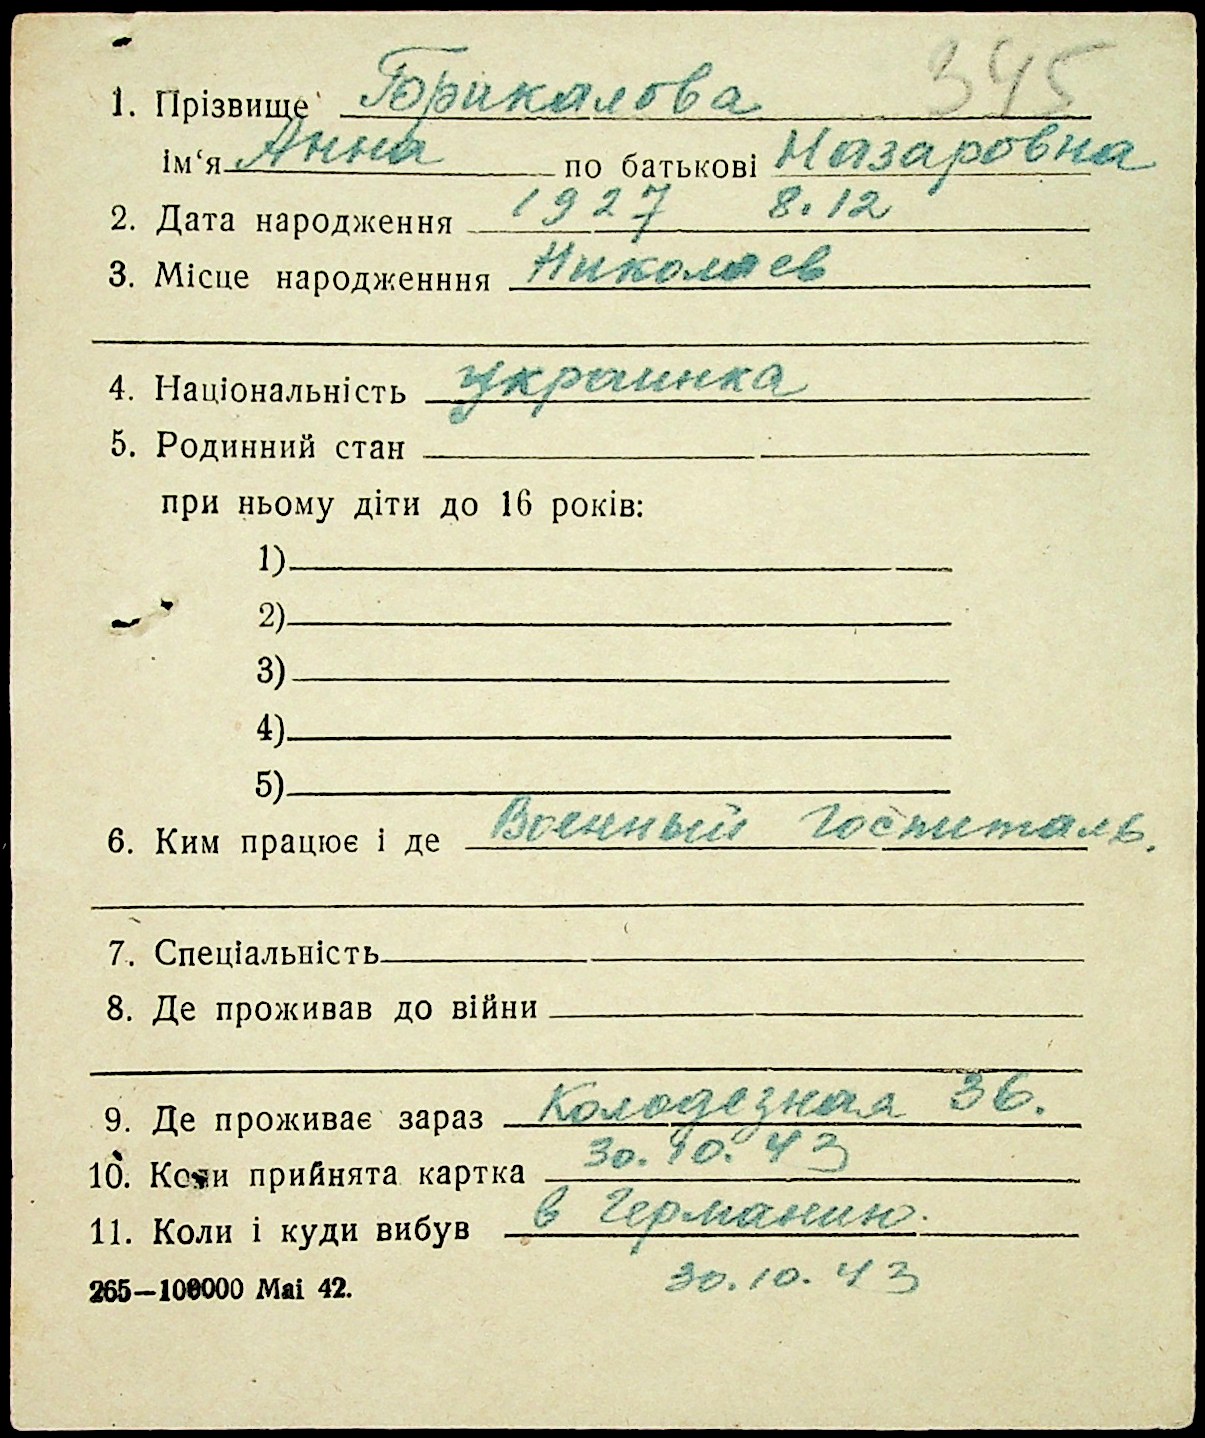 345
1. Прізвище Горикалова
ім‘я Анна по батькові Назаровна
2. Дата народження 1927 8.12
3. Місце народженння Николаев
4. Національність украинка
5. Родинний стан
при ньому діти до 16 років:
1)
2)
3)
4)
5)
6. Ким працює і де Военный госпиталь.
7. Спеціальність
8. Де проживав до війни
9. Де проживає зараз Колодезная 36.
10. Коли прийнята картка 30.10.43
11. Коли і куди вибув в Германию.
30.10.43
265—100000 Mai 42.